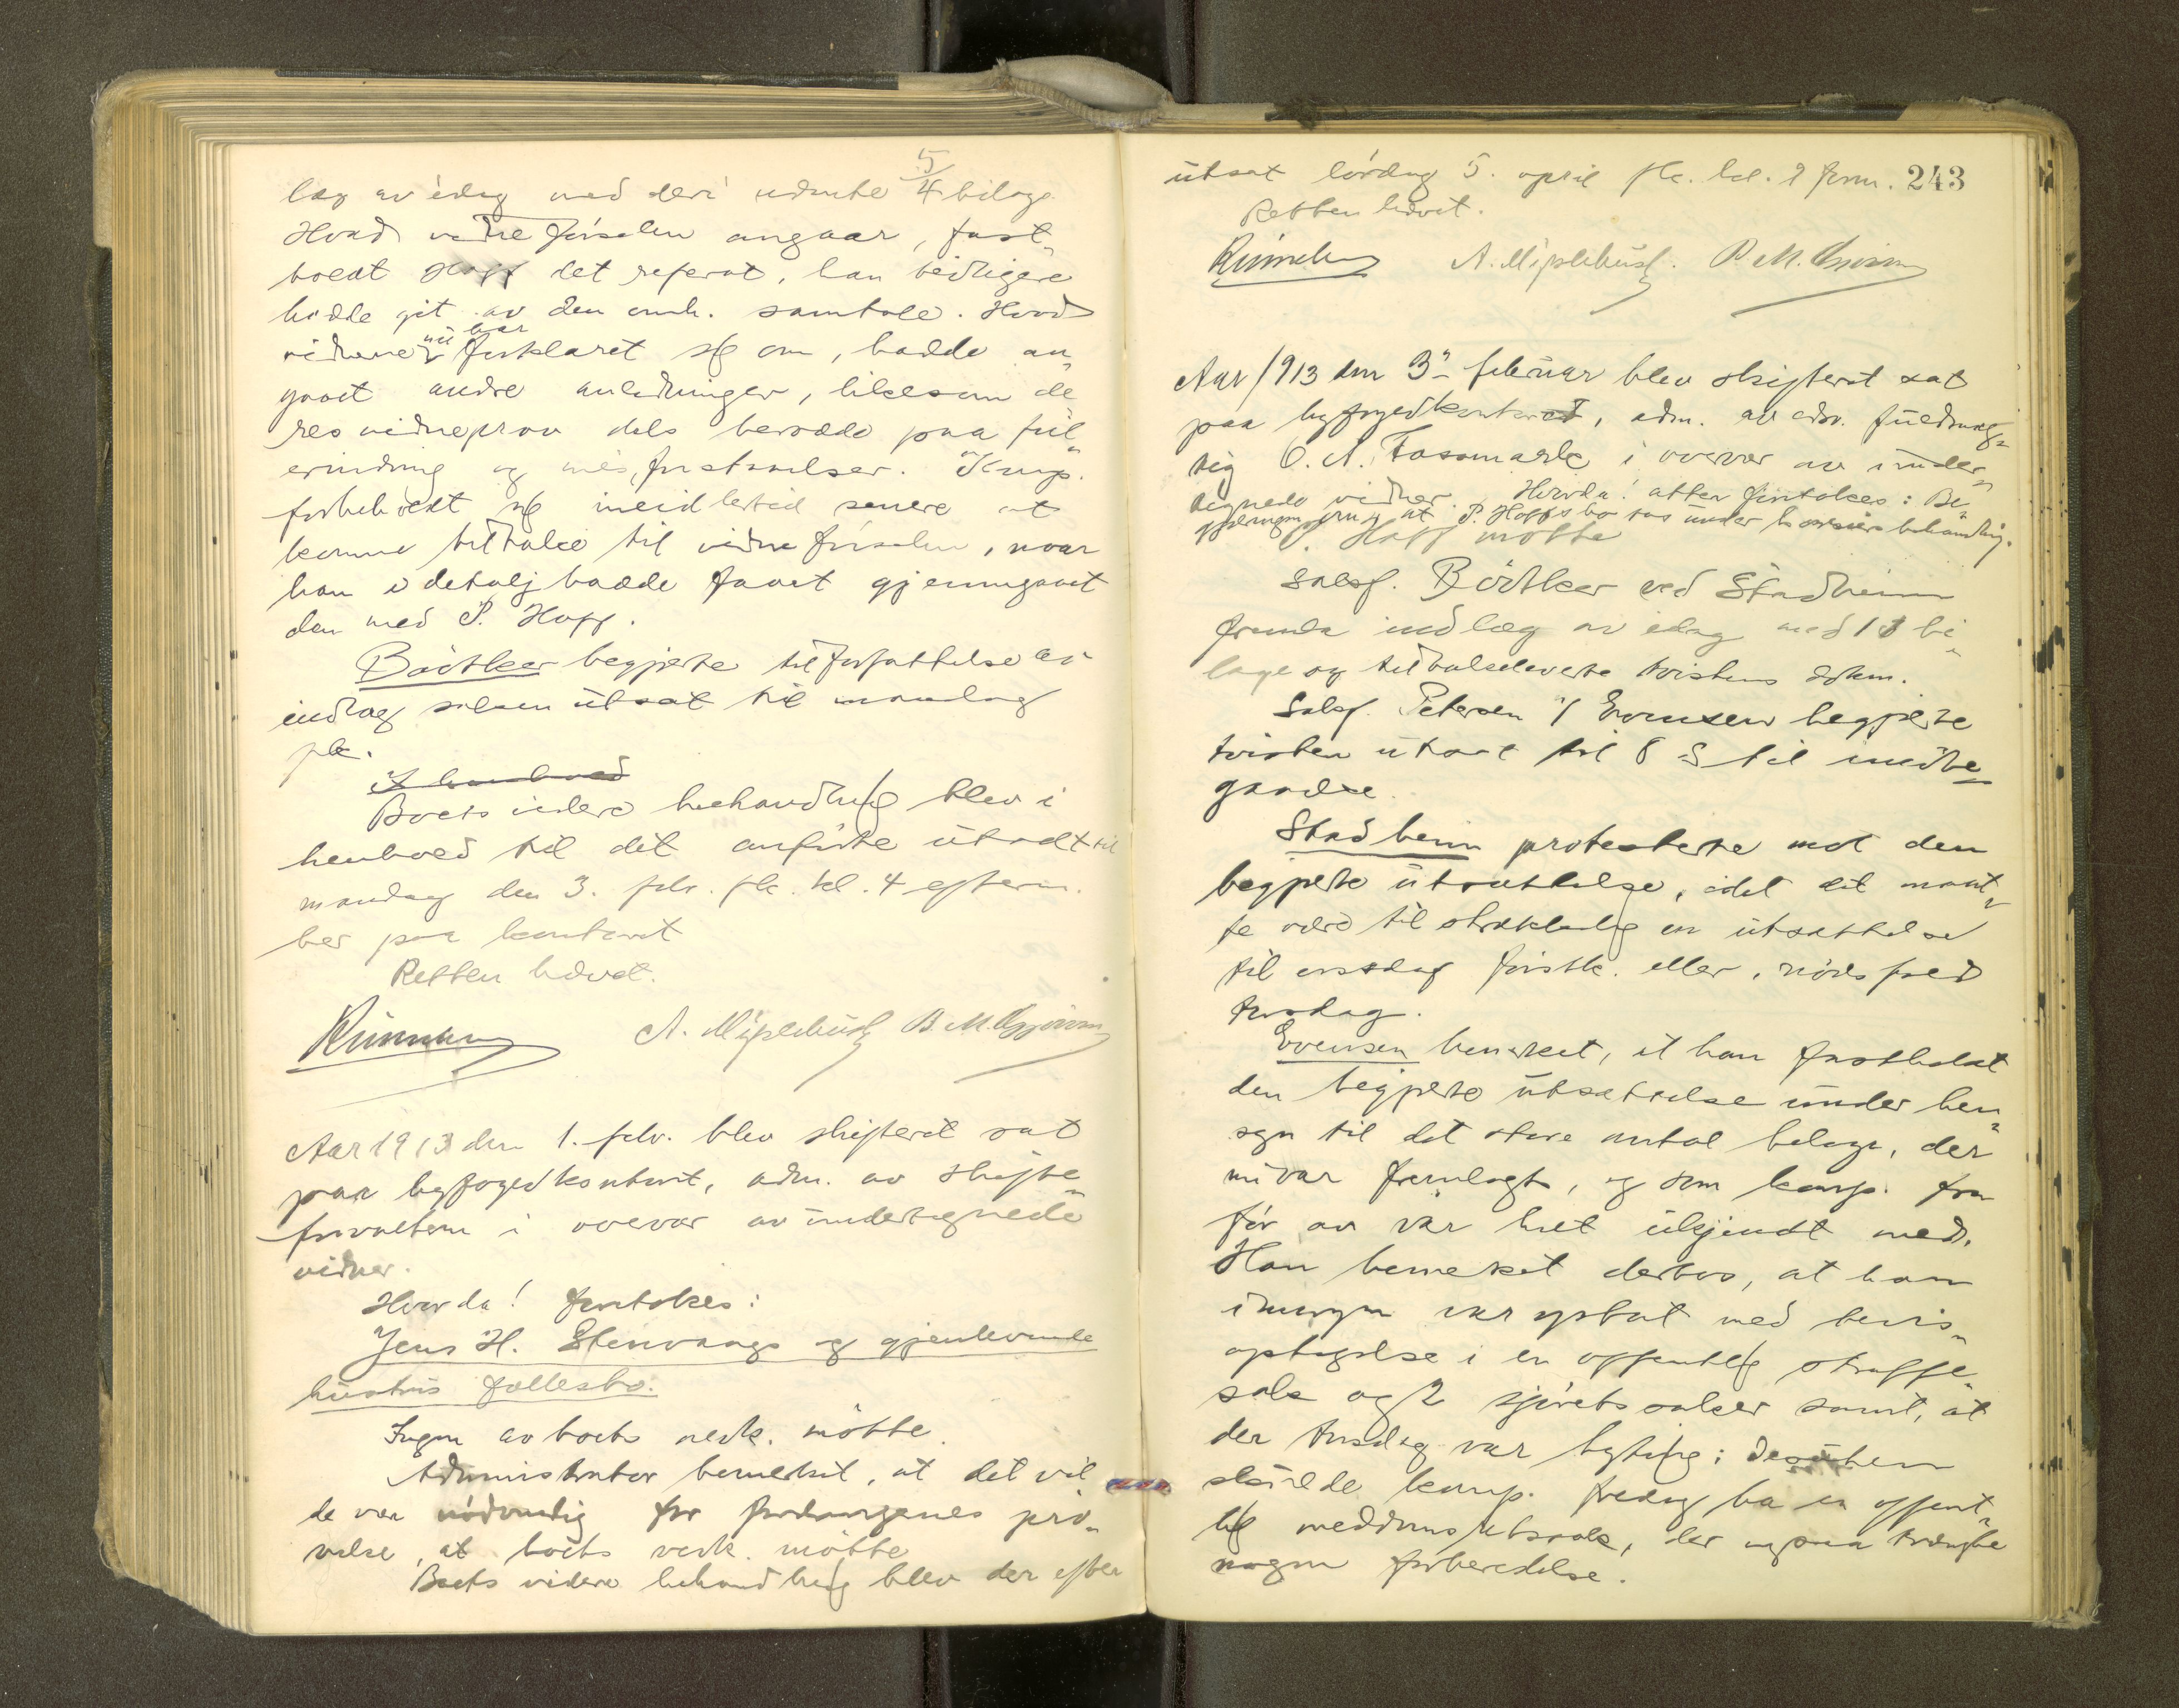 læg av idag med deri nævnte 5/4 bilage.
Hvad vidneførselen angaar, fast-
holdt Hoff det referat, han tidligere
hadde git av den omh. samtale. Hvad
vidnene nu har forklaret sig om, hadde an-
gaaet andre anledninger, likesom de
res vidneprov dels beroede paa feil-
erindring og misforstaaelser. Komp.
forbeholdt sig imidlertid senere at
komme tilbake til vidneførselen, naar
han i detalj hadde faaet gjennemgaaet
den med P. Hoff.
Bödtker begjærte til forfattelse av
indlæg saken utsat til mandag
flk.
I henhold
Boets videre behandling blev i
henhold til det anførte utsatt til
mandag den 3. febr. flk. kl. 4 efterm.
her paa kontoret
Retten hævet.
A. Mjplehus B. M.
Aar 1913 den 1. febr. blev skifteret sat
paa byfogedkontoret, adm. av skifte-
forvalteren i overvær av undertegnede
vidner.
Hvorda! foretokes:
Jens H. Stenvaags og gjenlevende
hustrus fællesbo.
Ingen av boets vedk. møtte.
Administrator bemerket, at det vil
de være nødvendig for fordringenes prø-
velse, at boets vedk. møtte
Boets videre behandling blev derefter
utsat lördag 5. april flk. kl. 9 form. 243
Retten hævet.
A. Mjplehus. B. M.
Aar 1913 den 3. februar blev skifteret sat
paa byfogedkontoret, adm. av edsv. fuldmæg-
tig O. A. Fassmark i overvær av under-
tegnede vidner. Hvorda! atter foretokes: Be-
gjæringen om at P. Hoffs bo tas under konkursbehandling.
Hoff møtte
Saksf. Bödtker ved Stadheim
fremla indlæg av idag med 13 bi-
lage og tilbakeleverte tvistens dokm.
Saksf. Petersen v/ Evensen begjærte
tvisten utsat til 8 ds til imøte-
gaaelse.
Stadheim protesterte mot den
begjærte utsættelse, idet det maat-
te være tilstrækkelig en utsættelse
til onsdag førstk. eller, nødsfald
torsdag.
Evensen bemerket, at han fastholdt
den begjærte utsættelse under hen-
syn til det store antal bilage, der
nu var fremlagt, og som komp. fra
før av var helt ukjendt med.
Han bemerket derhos, at han
imorgen var optat med bevis-
optagelse i en offentlig straffe-
sak og 2 sjøretssaker samt, at
der torsdag var byting; desuten
skulde komp. fredag ha en offent-
lig meddomsretssak, der ogsaa trængte
nogen forberedelse.